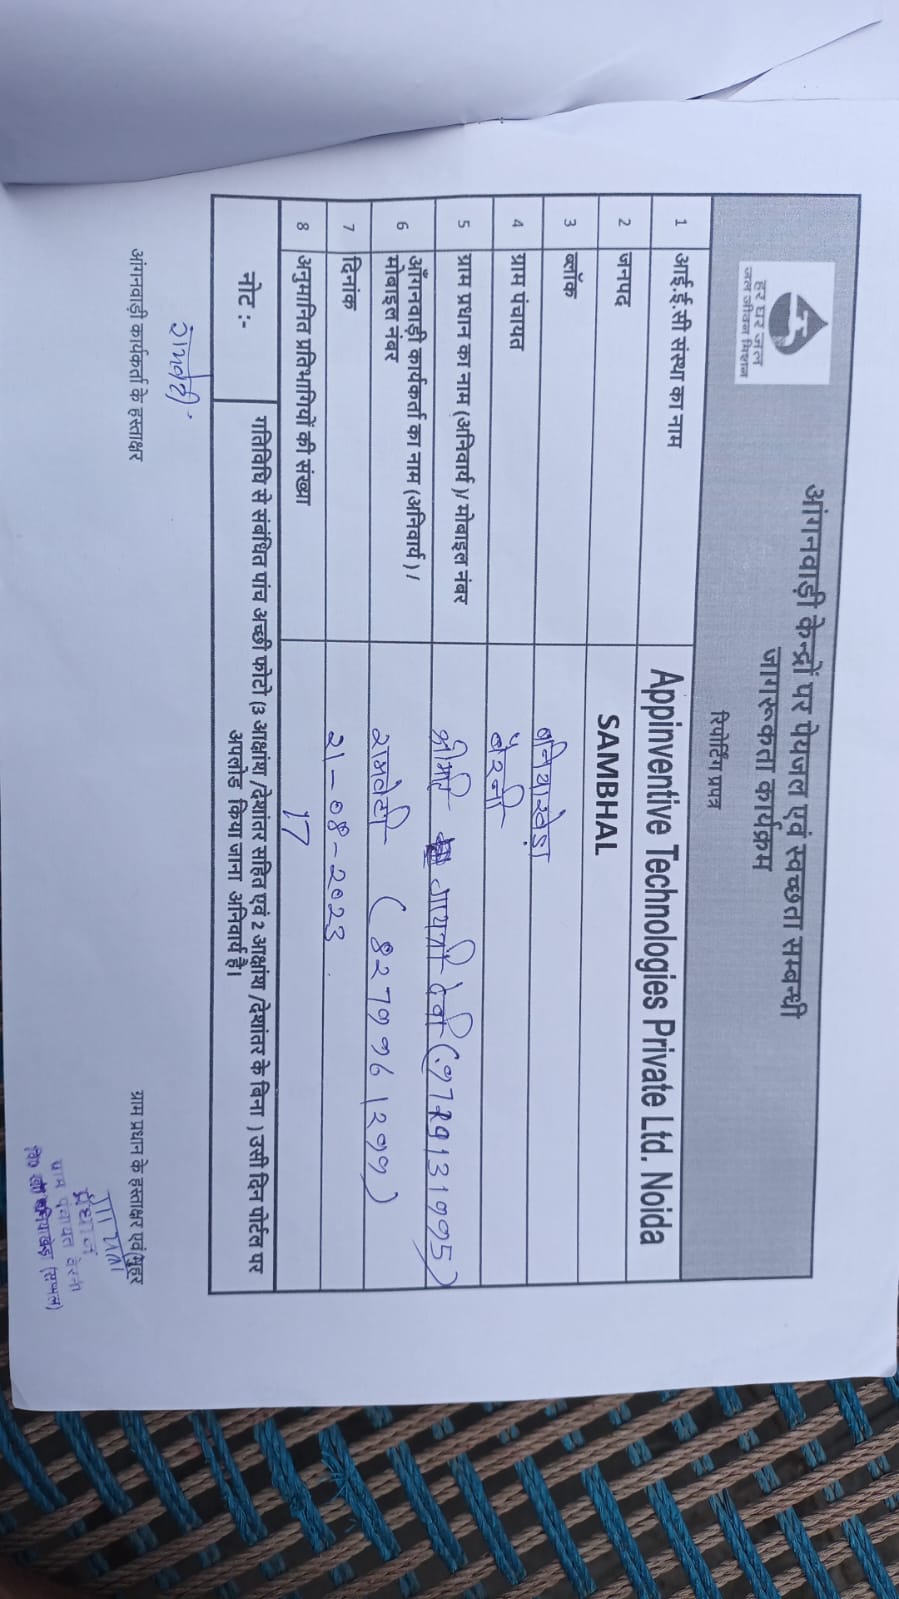 हर घर जल
जल जीवन मिशन
आंगनवाड़ी केन्द्रों पर पेयजल एवं स्वच्छता सम्बन्धी
जागरूकता कार्यक्रम
रिपोर्टिंग प्रपत्र
1 आई.ई.सी संस्था का नाम Appinventive Technologies Private Ltd. Noida
2 जनपद SAMBHAL
3 ब्लॉक बनियाखेड़ा
4 ग्राम पंचायत
5 ग्राम प्रधान का नाम (अनिवार्य )/ मोबाइल नंबर गायत्री देवी
6 आँगनवाड़ी कार्यकर्ता का नाम (अनिवार्य ) /
मोबाइल नंबर
7 दिनांक 21-08-2023
8 अनुमानित प्रतिभागियों की संख्या 17
नोट :- गतिविधि से संबंधित पांच अच्छी फोटो (3 आक्षांश /देशांतर सहित एवं 2 आक्षांश /देशांतर के बिना ) उसी दिन पोर्टल पर
अपलोड किया जाना अनिवार्य है।
आंगनवाड़ी कार्यकर्ता के हस्ताक्षर ग्राम प्रधान के हस्ताक्षर एवं मुहर
प्रधान
ग्राम पंचायत